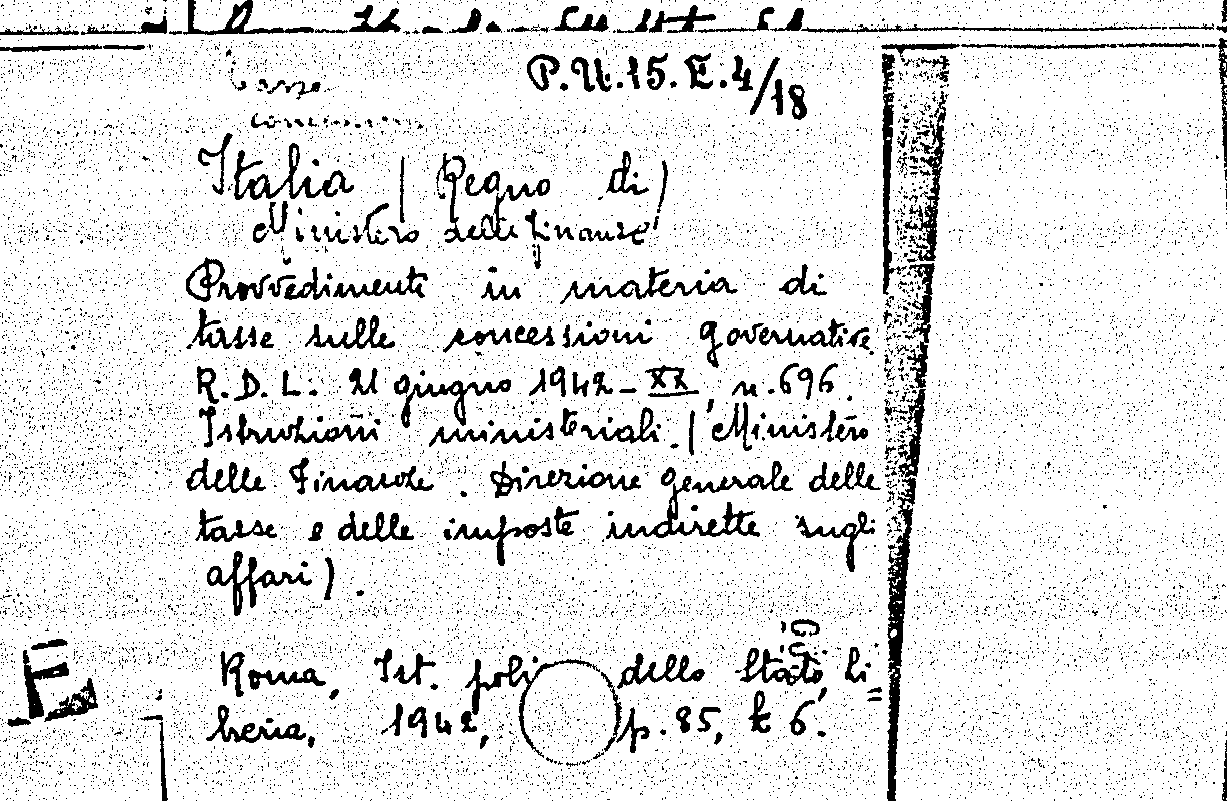 P.U.15.E.4/18
Tasse
concessioni
Italia (Regno di)
Ministero delle Finanze
Provvedimenti in materia di
tasse sulle concessioni governative
R.D.L. 21 giugno 1942-XX, n.696.
Istruzioni ministeriali. (Ministero
delle Finanze. Direzione generale delle
tasse e delle imposte indirette sugli
affari).
Roma, Ist. poli dello Stato, Li=
breria, 1942, p.85, £ 6.